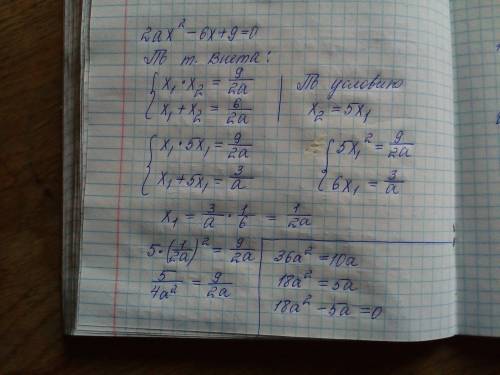 2ax² - 6x + 9 = 0
По т. Виета:
{ x₁ · x₂ = 9/2a
{ x₁ + x₂ = 6/2a
По условию
x₂ = 5x₁
{ x₁ · 5x₁ = 9/2a
{ x₁ + 5x₁ = 3/a
{ 5x₁² = 9/2a
{ 6x₁ = 3/a
x₁ = 3/a · 1/6 = 1/2a
5 · (1/2a)² = 9/2a
5/4a² = 9/2a
36a² = 10a
18a² = 5a
18a² - 5a = 0